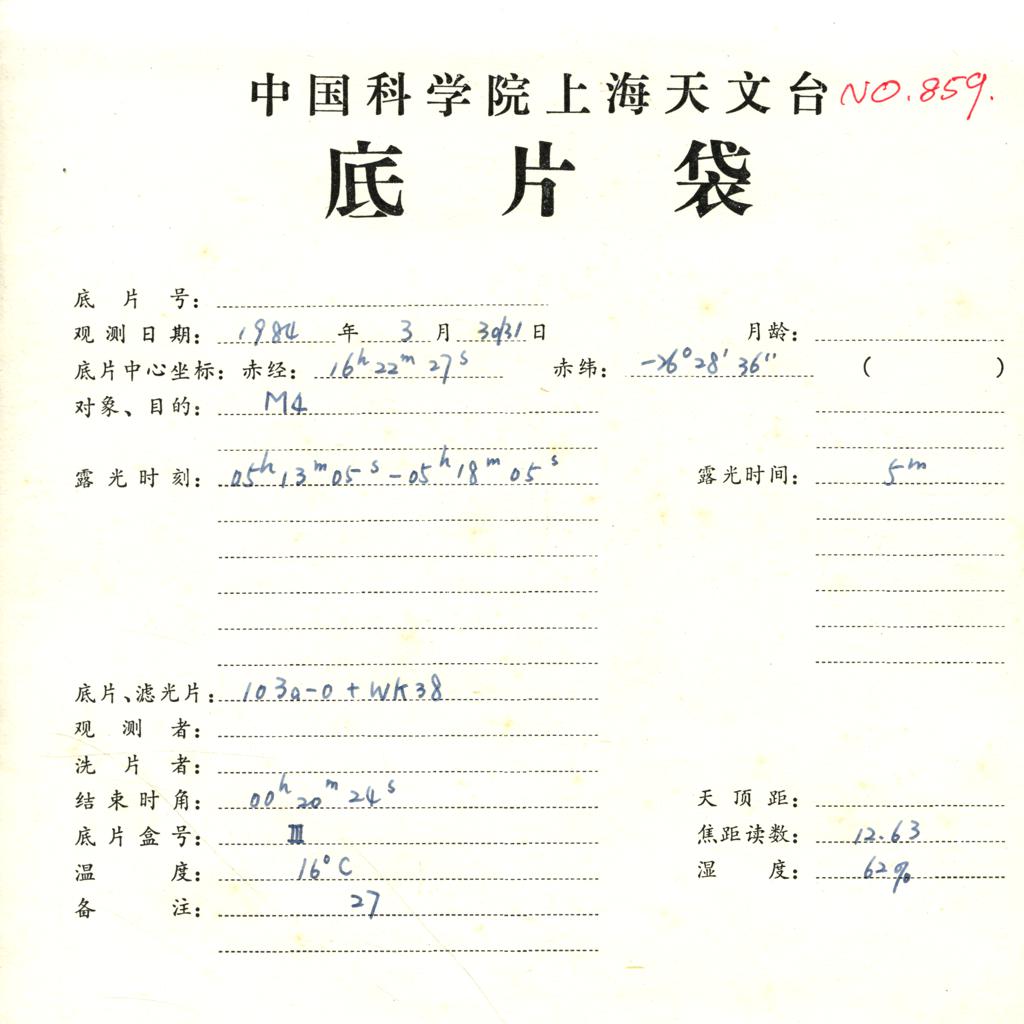 中国科学院上海天文台 NO.859.
底片袋
底片号：
观测日期：1984年3月30/31日 月龄：
底片中心坐标：赤经：16h22m27s 赤纬：-26°28′36″ ( )
对象、目的：M4
露光时刻：05h13m05s-05h18m05s 露光时间：5m
底片、滤光片：103a-O+WK38
观测者：
洗片者：
结束时角：00h20m24s 天顶距：
底片盒号：Ⅲ 焦距读数：12.63
温度：16°C 湿度：62%
备注：27